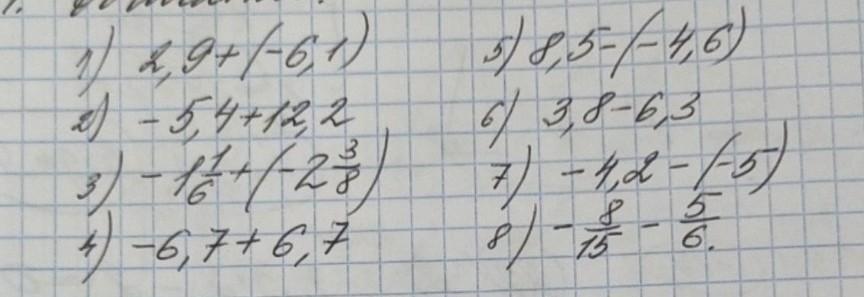 1.
1) 2,9+(-6,1)
2) -5,4+12,2
3) -1 1/6+(-2 3/8)
4) -6,7+6,7
5) 8,5-(-4,6)
6) 3,8-6,3
7) -4,2-(-5)
8) -8/15-5/6.